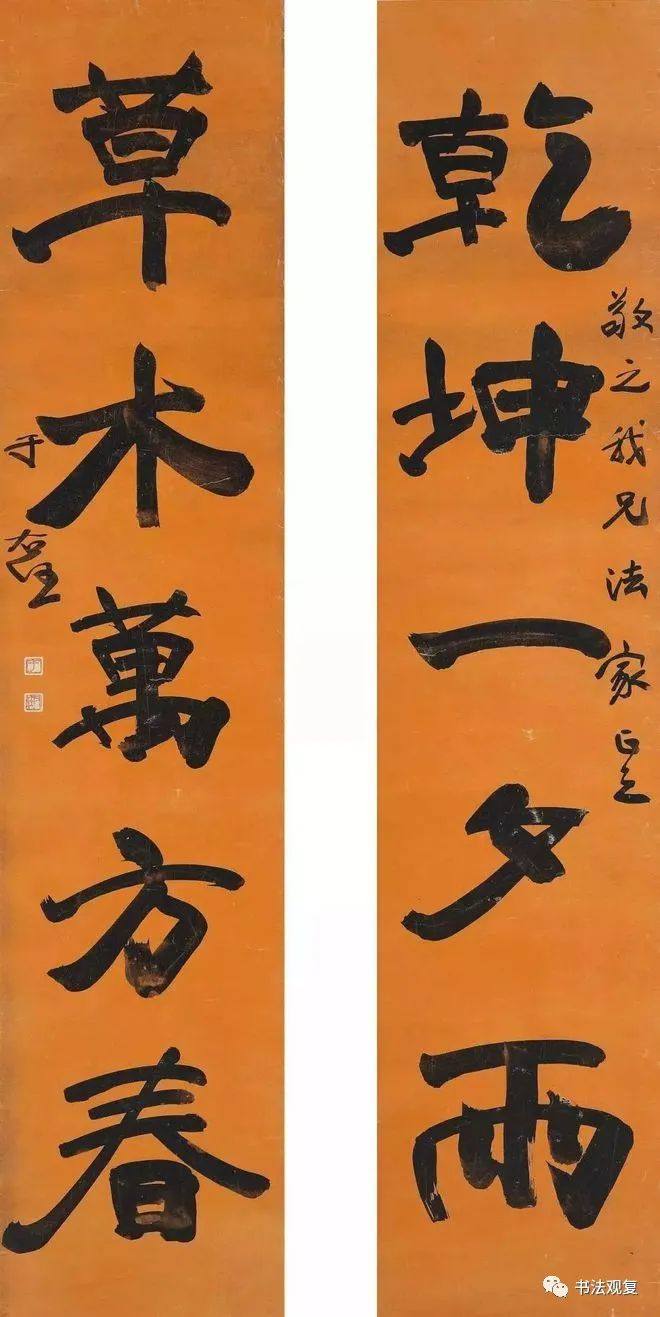 敬之我兄法家正之
乾坤一夕雨
草木萬方春
于右任
书法观复